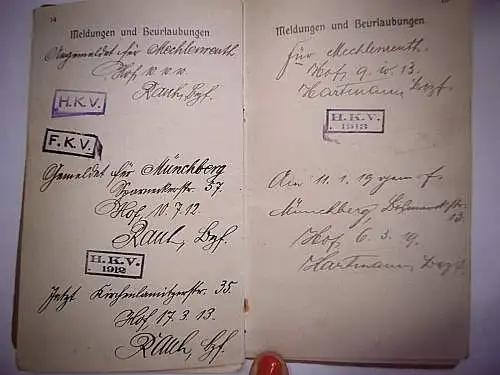 14
Meldungen und Beurlaubungen
Angemeldet für Mechlenreuth.
Hof,
Rauh, Bzf.
H.K.V.
F.K.V.
Gemeldet für Münchberg
Sparneckerstr. 37.
Hof, 10.7.12.
Rauh, Bzf.
H.K.V.
1912
Jetzt Kirchenlamitzerstr. 35.
Hof, 17.3.13.
Rauh, Bzf.
Meldungen und Beurlaubungen
für Mechlenreuth.
Hof, 9. IV. 13.
Hartmann, Bezf.
H.K.V.
1913
Am 11.1.19
Münchberg, Bismarckstr.
13.
Hof, 6.3.19.
Hartmann, Bezf.